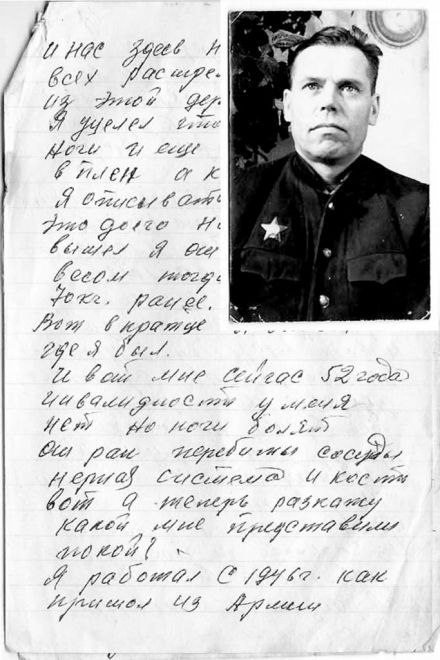 и нас здесь н
всех расстре
из этой дер
Я уцелел что
ноги и еще
в плен а к
Я описывать
это долго н
вышел я от
весом тогда
70кг. ранее.
Вот вкратце
где я был.
И вот мне сейчас 52 года
инвалидности у меня
нет но ноги болят
от ран перебиты сосуды
нервная система и кости
вот а теперь разкажу
какой мне представили
покой?
Я работал с 1946г. как
пришол из Армии